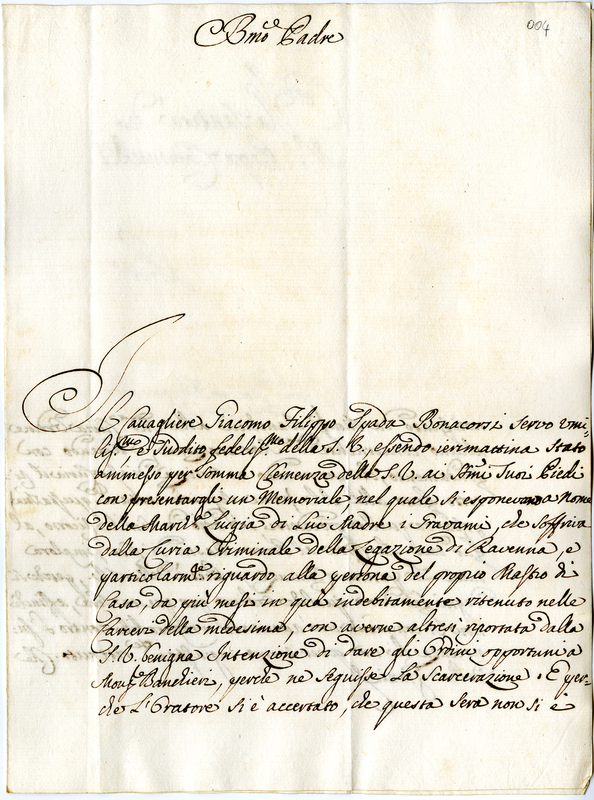 004
Bmo Padre
Il Cavagliere Giacomo Filippo Spada Bonacorsi servo umi-
liss.mo e Suddito fedeliss.mo della S. V., essendo ierimattina stato
ammesso per somma Clemenza della S. V. ai SSmi Suoi Piedi
con presentargli un Memoriale, nel quale si esponevano a nome
della March.a Luigia di Lui Madre i Gravami, che soffriva
dalla Curia Criminale della Legazione di Ravenna, e
particolarm.e riguardo alla persona del proprio Mastro di
Casa, da più mesi in qua indebitamente ritenuto nelle
Carceri della medesima, con averne altresì riportata dalla
S. V. benigna Intenzione di dare gli Ordini opportuni a
Mons.r Banchieri, perchè ne seguisse la Scarcerazione. E per-
che l'Oratore si è accertato, che questa sera non si è